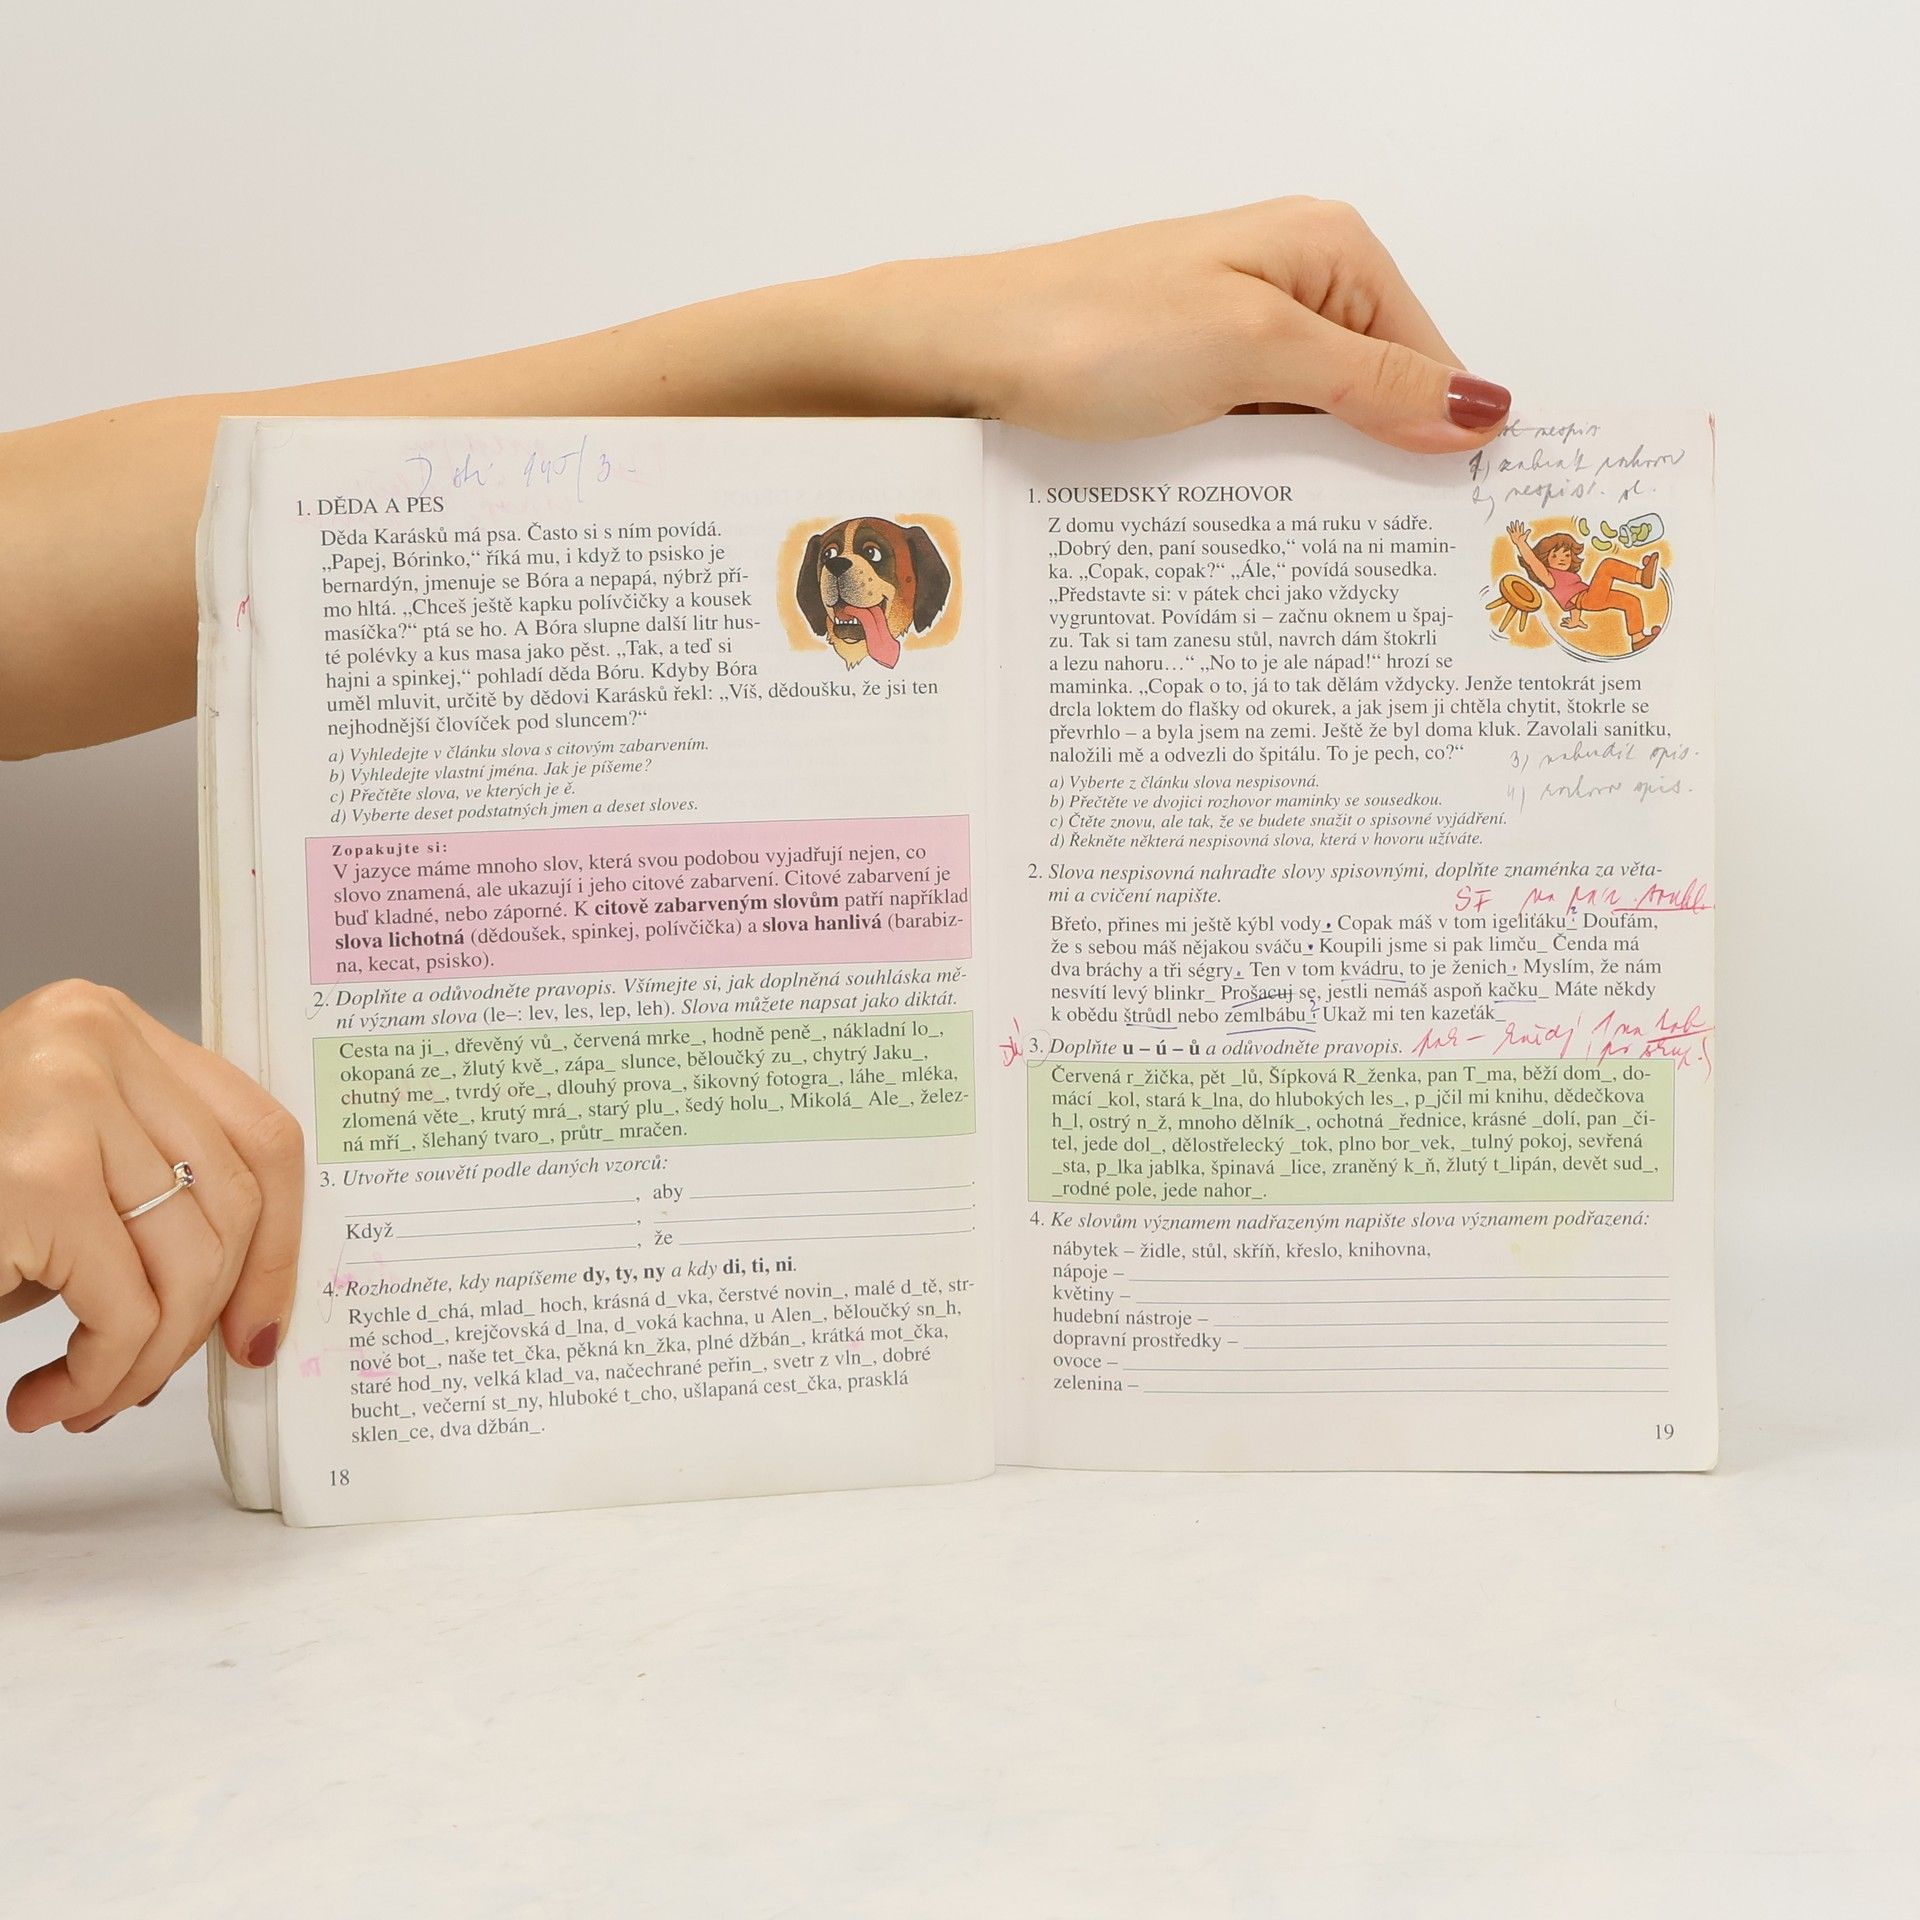 1. DĚDA A PES
Děda Karásků má psa. Často si s ním povídá.
„Papej, Bórinko,“ říká mu, i když to psisko je
bernardýn, jmenuje se Bóra a nepapá, nýbrž pří-
mo hltá. „Chceš ještě kapku polívčičky a kousek
masíčka?“ ptá se ho. A Bóra slupne další litr hus-
té polévky a kus masa jako pěst. „Tak, a teď si
hajni a spinkej,“ pohladí děda Bóru. Kdyby Bóra
uměl mluvit, určitě by dědovi Karásků řekl: „Víš, dědoušku, že jsi ten
nejhodnější človíček pod sluncem?“
a) Vyhledejte v článku slova s citovým zabarvením.
b) Vyhledejte vlastní jména. Jak je píšeme?
c) Přečtěte slova, ve kterých je ě.
d) Vyberte deset podstatných jmen a deset sloves.
Zopakujte si:
V jazyce máme mnoho slov, která svou podobou vyjadřují nejen, co
slovo znamená, ale ukazují i jeho citové zabarvení. Citové zabarvení je
buď kladné, nebo záporné. K citově zabarveným slovům patří například
slova lichotná (dědoušek, spinkej, polívčička) a slova hanlivá (barabiz-
na, kecat, psisko).
2. Doplňte a odůvodněte pravopis. Všímejte si, jak doplněná souhláska mě-
ní význam slova (le–: lev, les, lep, leh). Slova můžete napsat jako diktát.
Cesta na ji_, dřevěný vů_, červená mrke_, hodně peně_, nákladní lo_,
okopaná ze_, žlutý kvě_, zápa_ slunce, běloučký zu_, chytrý Jaku_,
chutný me_, tvrdý oře_, dlouhý prova_, šikovný fotogra_, láhe_ mléka,
zlomená věte_, krutý mrá_, starý plu_, šedý holu_, Mikolá_ Ale_, želez-
ná mří_, šlehaný tvaro_, průtr_ mračen.
3. Utvořte souvětí podle daných vzorců:
____, aby ____.
Když ____, ____.
____, že ____.
4. Rozhodněte, kdy napíšeme dy, ty, ny a kdy di, ti, ni.
Rychle d_chá, mlad_ hoch, krásná d_vka, čerstvé novin_, malé d_tě, str-
mé schod_, krejčovská d_lna, d_voká kachna, u Alen_, běloučký sn_h,
nové bot_, naše tet_čka, pěkná kn_žka, plné džbán_, krátká mot_čka,
staré hod_ny, velká klad_va, načechrané peřin_, svetr z vln_, dobré
bucht_, večerní st_ny, hluboké t_cho, ušlapaná cest_čka, prasklá
sklen_ce, dva džbán_.
18
nespis
2) nespis. sl.
1. SOUSEDSKÝ ROZHOVOR
Z domu vychází sousedka a má ruku v sádře.
„Dobrý den, paní sousedko,“ volá na ni mamin-
ka. „Copak, copak?“ „Ále,“ povídá sousedka.
„Představte si: v pátek chci jako vždycky
vygruntovat. Povídám si – začnu oknem u špaj-
zu. Tak si tam zanesu stůl, navrch dám štokrli
a lezu nahoru…“ „No to je ale nápad!“ hrozí se
maminka. „Copak o to, já to tak dělám vždycky. Jenže tentokrát jsem
drcla loktem do flašky od okurek, a jak jsem ji chtěla chytit, štokrle se
převrhlo – a byla jsem na zemi. Ještě že byl doma kluk. Zavolali sanitku,
naložili mě a odvezli do špitálu. To je pech, co?“
3) nahradit spis.
4) rozhovor spis.
a) Vyberte z článku slova nespisovná.
b) Přečtěte ve dvojici rozhovor maminky se sousedkou.
c) Čtěte znovu, ale tak, že se budete snažit o spisovné vyjádření.
d) Řekněte některá nespisovná slova, která v hovoru užíváte.
2. Slova nespisovná nahraďte slovy spisovnými, doplňte znaménka za věta-
mi a cvičení napište.
Břeťo, přines mi ještě kýbl vody. Copak máš v tom igeliťáku? Doufám,
že s sebou máš nějakou sváču. Koupili jsme si pak limču_ Čenda má
dva bráchy a tři ségry. Ten v tom kvádru, to je ženich. Myslím, že nám
nesvítí levý blinkr_ Prošacuj se, jestli nemáš aspoň kačku_ Máte někdy
k obědu štrúdl nebo zemlbábu? Ukaž mi ten kazeťák_
3. Doplňte u – ú – ů a odůvodněte pravopis.
Červená r_žička, pět _lů, Šípková R_ženka, pan T_ma, běží dom_, do-
mácí _kol, stará k_lna, do hlubokých les_, p_jčil mi knihu, dědečkova
h_l, ostrý n_ž, mnoho dělník_, ochotná _řednice, krásné _dolí, pan _či-
tel, jede dol_, dělostřelecký _tok, plno bor_vek, _tulný pokoj, sevřená
_sta, p_lka jablka, špinavá _lice, zraněný k_ň, žlutý t_lipán, devět sud_,
_rodné pole, jede nahor_.
4. Ke slovům významem nadřazeným napište slova významem podřazená:
nábytek – židle, stůl, skříň, křeslo, knihovna,
nápoje –
květiny –
hudební nástroje –
dopravní prostředky –
ovoce –
zelenina –
19